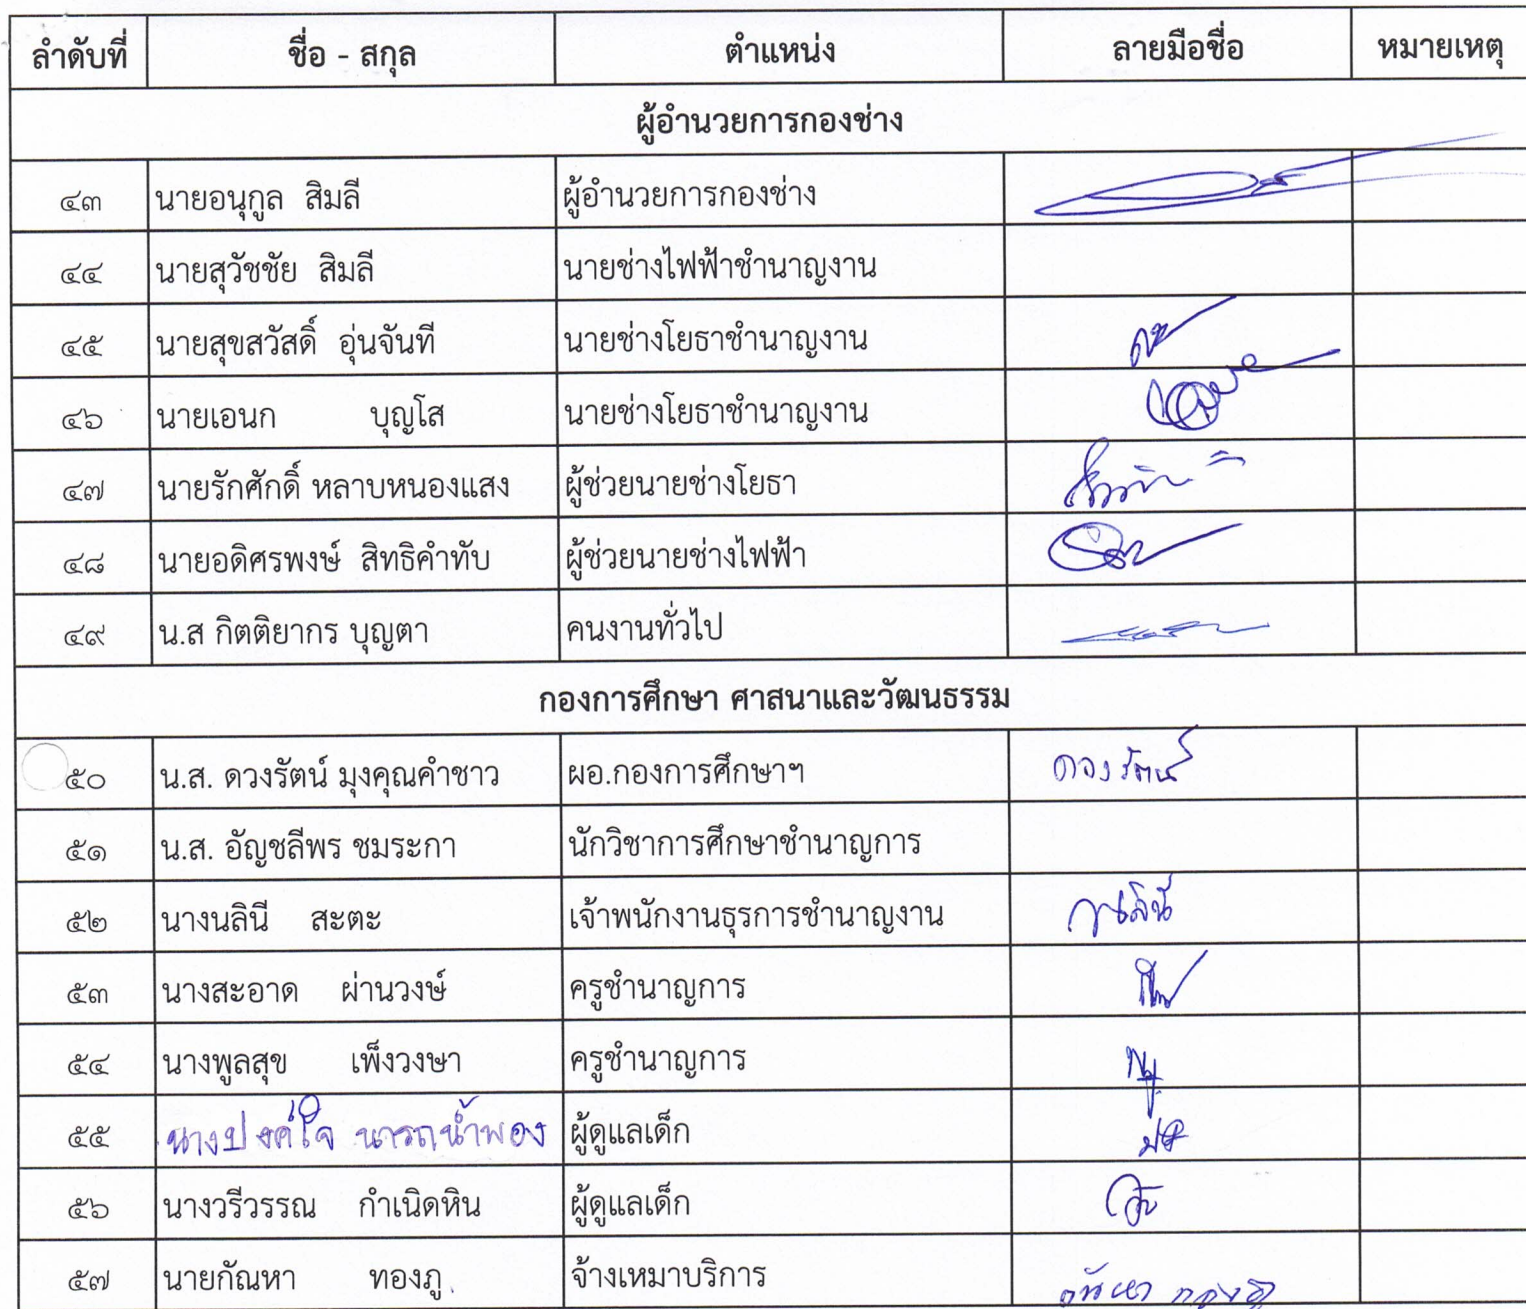 ลำดับที่ ชื่อ - สกุล ตำแหน่ง ลายมือชื่อ หมายเหตุ
ผู้อำนวยการกองช่าง
๔๓ นายอนุกูล สิมลี ผู้อำนวยการกองช่าง
๔๔ นายสุวัชชัย สิมลี นายช่างไฟฟ้าชำนาญงาน
๔๕ นายสุขสวัสดิ์ อุ่นจันที นายช่างโยธาชำนาญงาน
๔๖ นายเอนก บุญโส นายช่างโยธาชำนาญงาน
๔๗ นายรักศักดิ์ หลาบหนองแสง ผู้ช่วยนายช่างโยธา
๔๘ นายอดิศรพงษ์ สิทธิคำทับ ผู้ช่วยนายช่างไฟฟ้า
๔๙ น.ส กิตติยากร บุญตา คนงานทั่วไป
กองการศึกษา ศาสนาและวัฒนธรรม
๕๐ น.ส. ดวงรัตน์ มุงคุณคำชาว ผอ.กองการศึกษาฯ ดวงรัตน์
๕๑ น.ส. อัญชลีพร ชมระกา นักวิชาการศึกษาชำนาญการ
๕๒ นางนลินี สะตะ เจ้าพนักงานธุรการชำนาญงาน
๕๓ นางสะอาด ผ่านวงษ์ ครูชำนาญการ
๕๔ นางพูลสุข เพ็งวงษา ครูชำนาญการ
๕๕ นาง น้ำพอง ผู้ดูแลเด็ก
๕๖ นางวรีวรรณ กำเนิดหิน ผู้ดูแลเด็ก
๕๗ นายกัณหา ทองภู จ้างเหมาบริการ กัณหา ทองภู